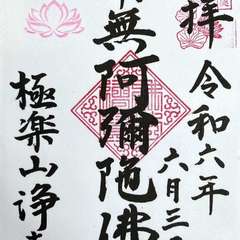 拝
令和六年
六月三
無阿彌陀佛
極楽山浄